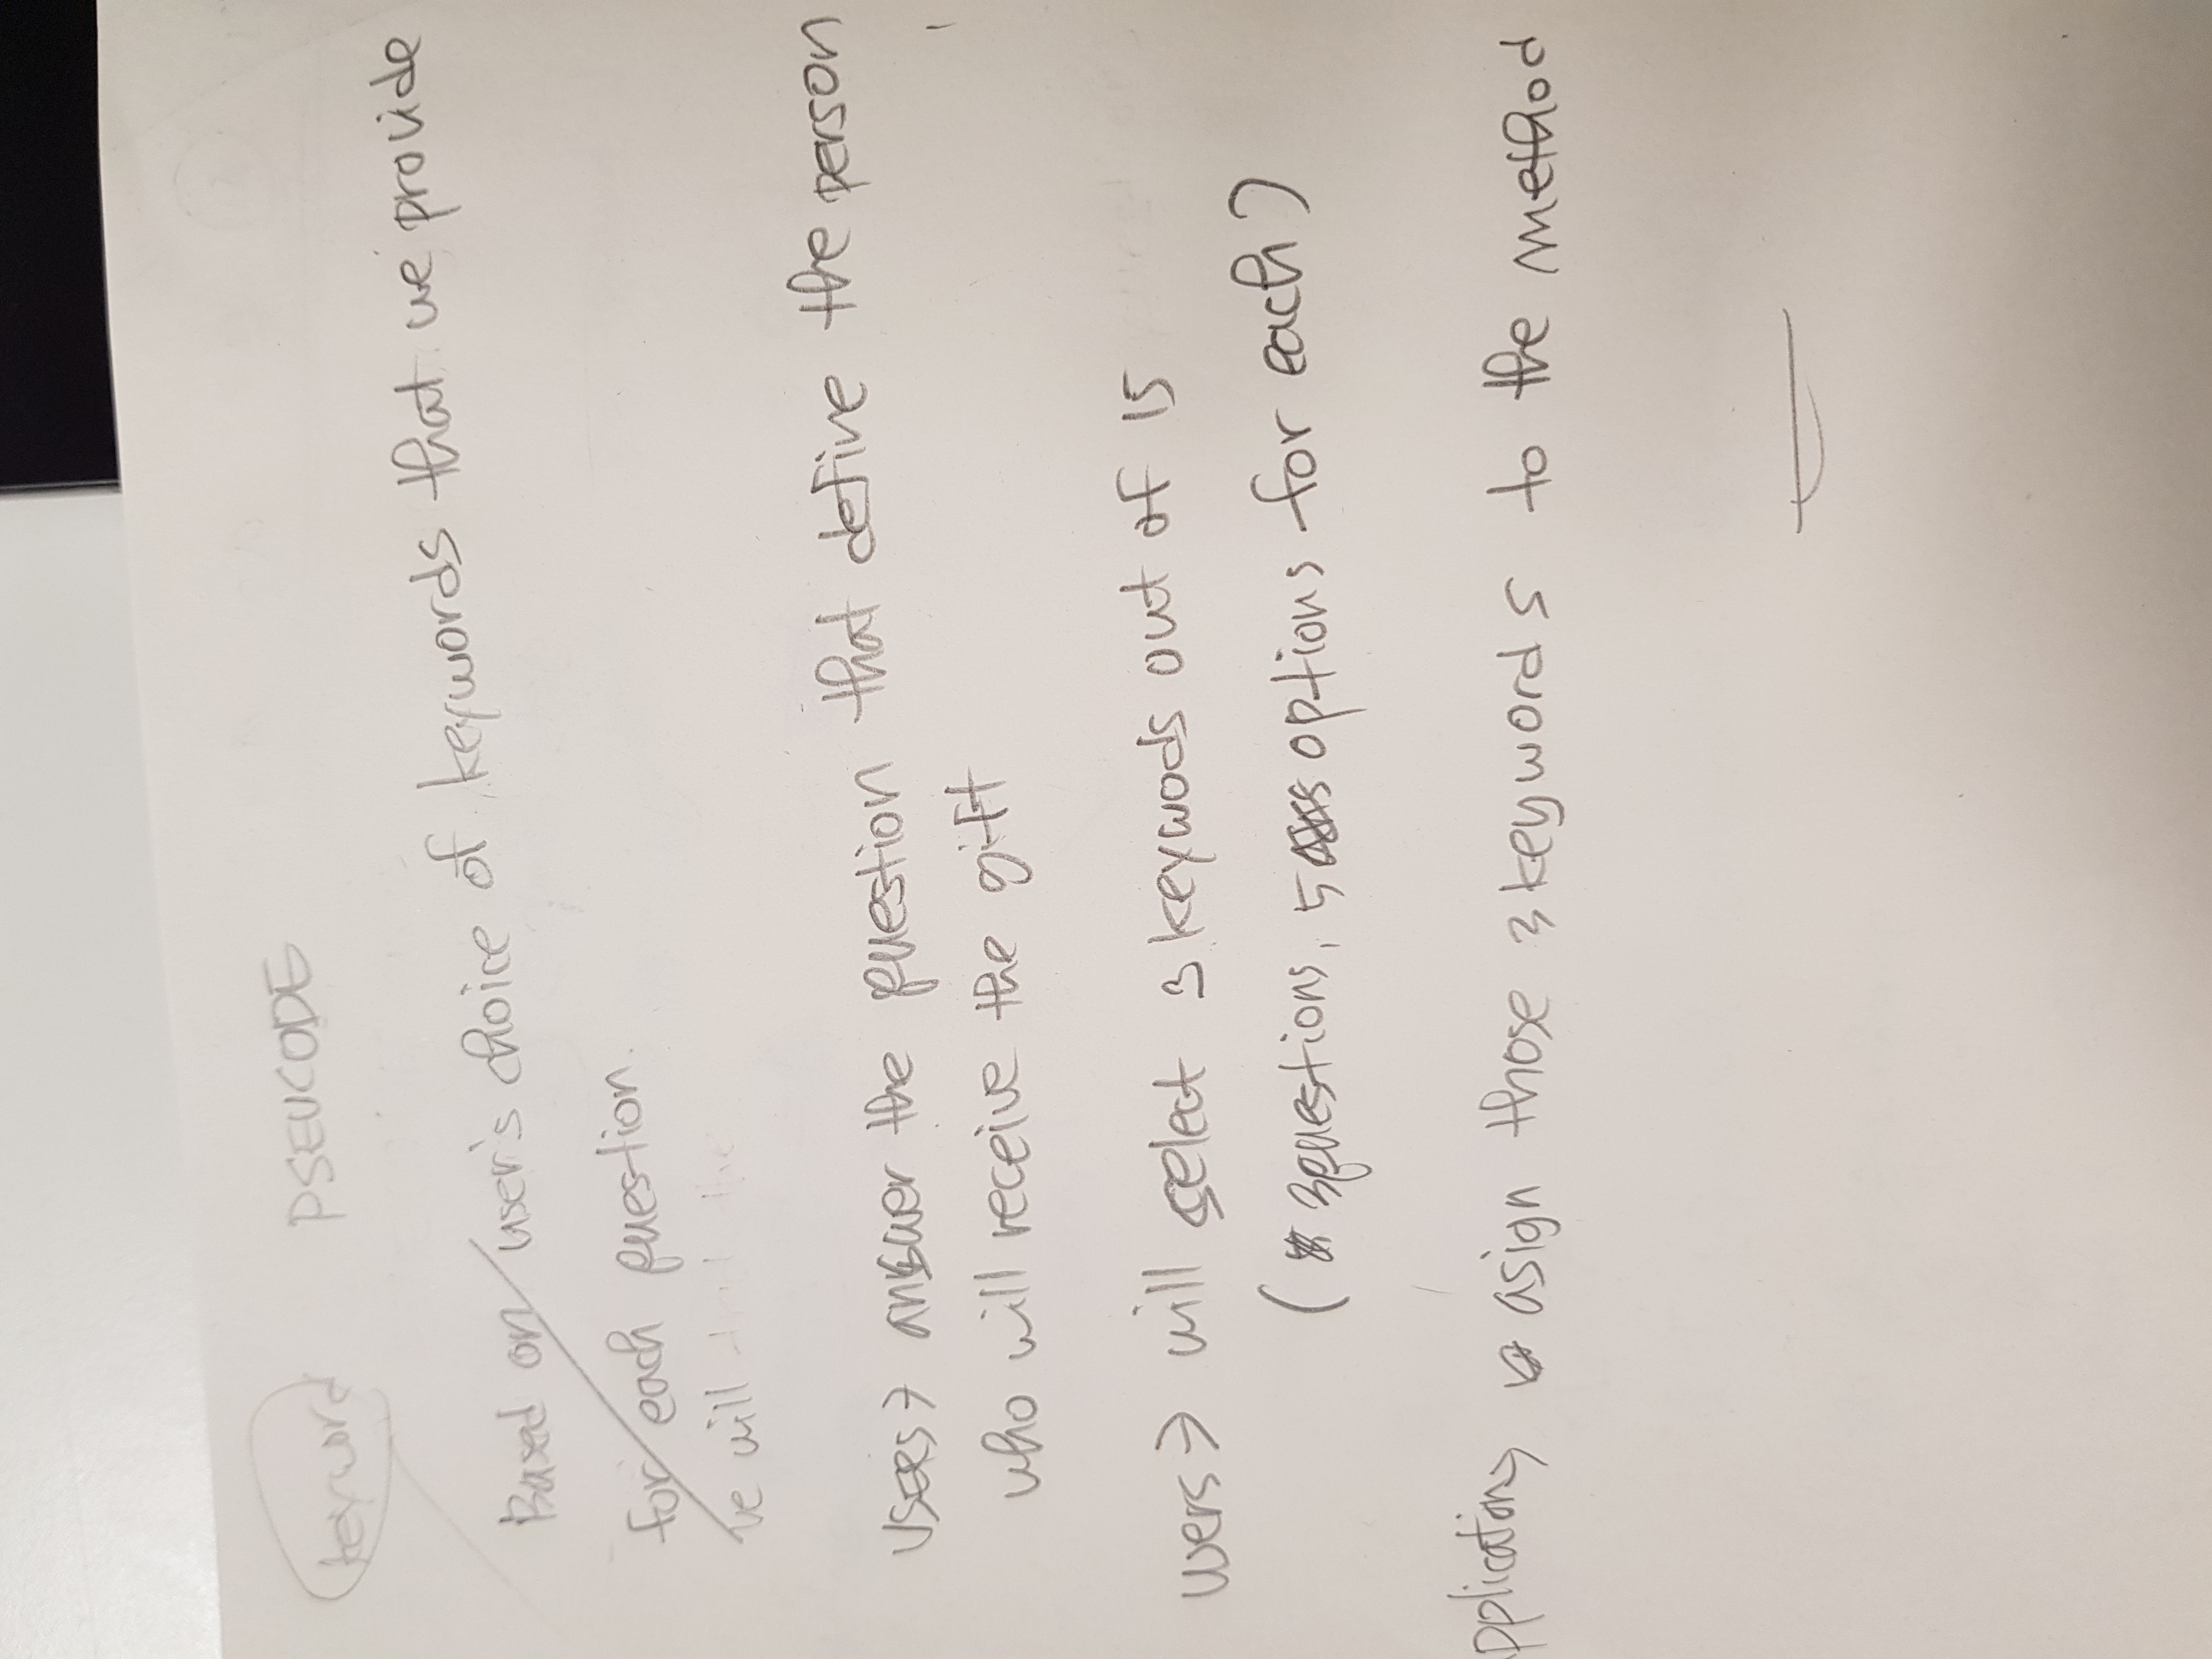 keyword PSEUCODE
Based on user's choice of keywords that we provide
for each question.
we will
USERS → answer the question that define the person
who will receive the gift
users → will select 3 keywods out of 15
(3questions, 5 options for each)
pplication → asign those 3 keywords to the method